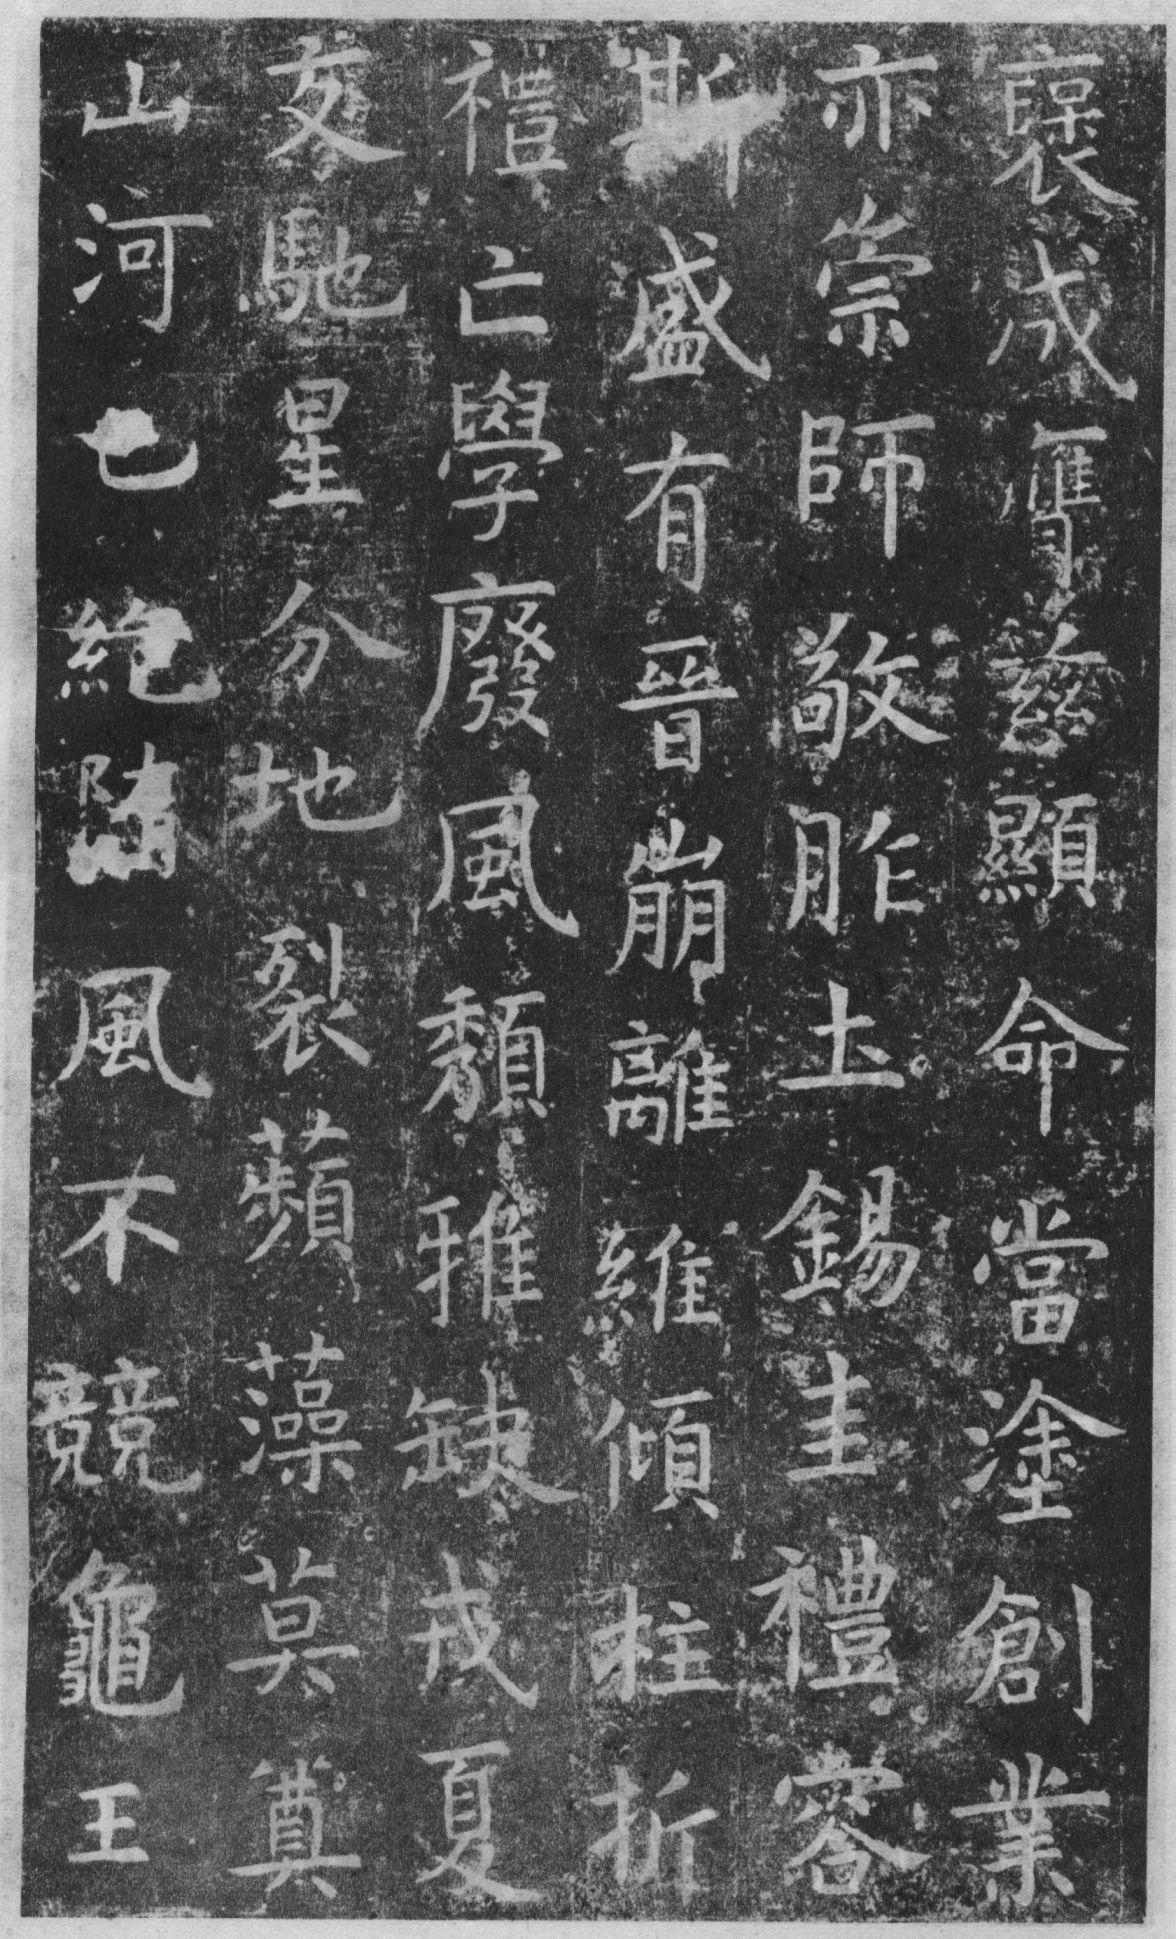 褒成膺茲顯命當塗創業
亦崇師敬胙土錫圭禮容
斯盛有晉崩離維傾柱折
禮亡學廢風頹雅缺戎夏
交馳星分地裂蘋藻莫奠
山河已絕隋風不競龜王